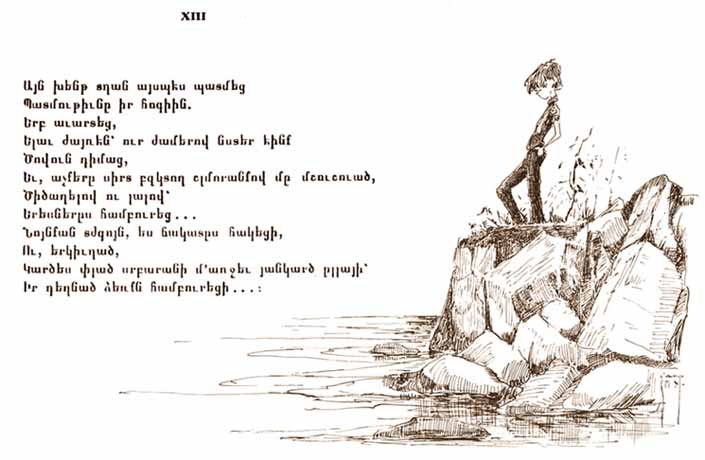 XIII
Այն խենթ տղան այսպես պատմեց
Պատմութիւնը իր հոգիին.
Երբ աւարտեց,
Ելաւ ժայռէն՝ ուր ժամերով նստեր էինք
Ծովուն դիմաց,
Եւ, աչքերը սիրտ բզկտող շլմորանքով մը մշուշուած,
Ծիծաղելով ու լալով՝
Երեսներըս համբուրեց...
Նոյնքան տժգոյն, ես ճակատըս հակեցի,
Ու, երկիւղած,
Կարծես փլած սրբարանի մ՚առջեւ յանկարծ ըլլայի՝
Իր դեղնած ձեռքն համբուրեցի...։